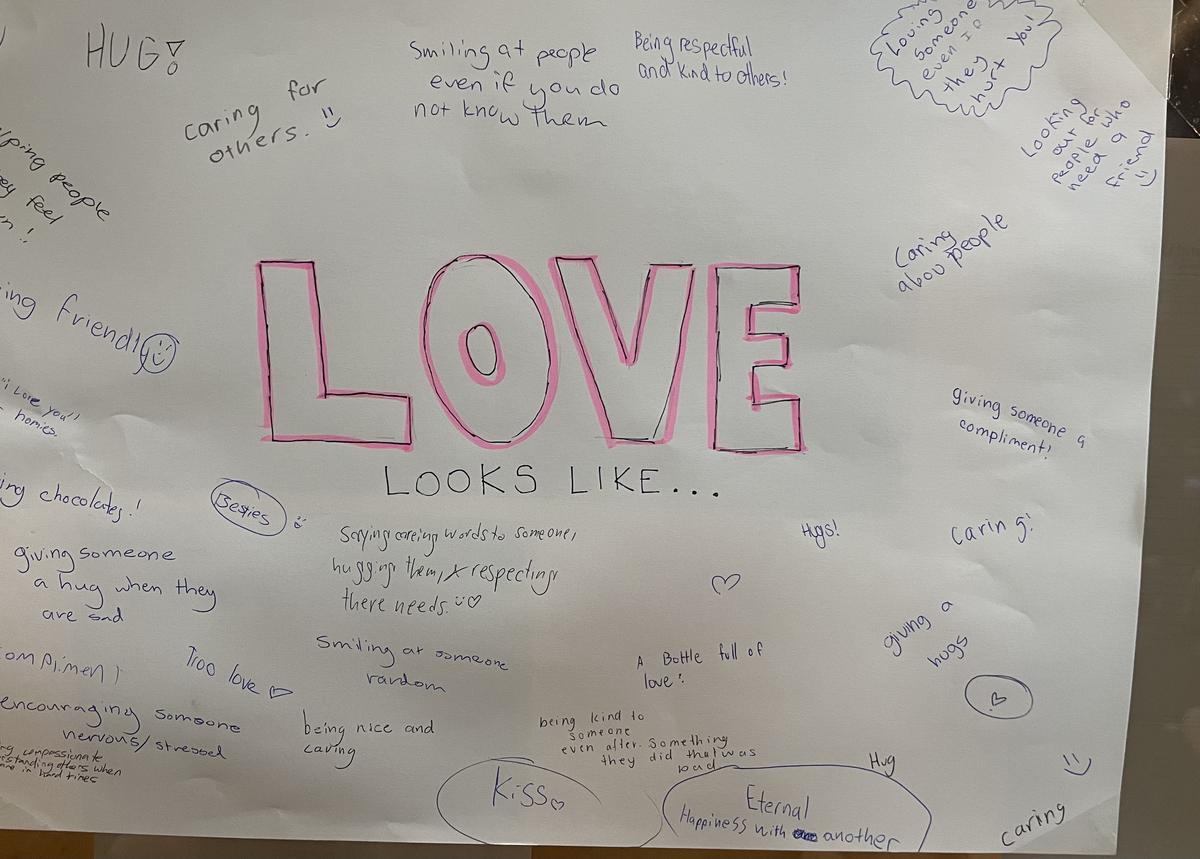 HUG!
caring for
others. :)
Smiling at people
even if you do
not know them
Being respectful
and kind to others!
Loving
someone
even if
they
hurt you!
Looking
out for
people who
need a
friend
:)
people
feel
Caring
abou people
friendly
"i Love you"
homies.
LOVE
LOOKS LIKE...
giving someone a
compliment!
chocolates!
Besties :)
Saying careing words to someone,
hugging them, & respecting
there needs. :) ♡
Hugs!
caring!
♡
giving someone
a hug when they
are sad
giving a
hugs
Troo love ♡
Smiling at someone
random
A Bottle full of
love!
♡
encouraging someone
nervous/stressed
being nice and
caring
being kind to
someone
even after something
they did that was
bad
compassionate
others when
in hard times
Kiss ♡
Hug
:)
Eternal
Happiness with another
caring